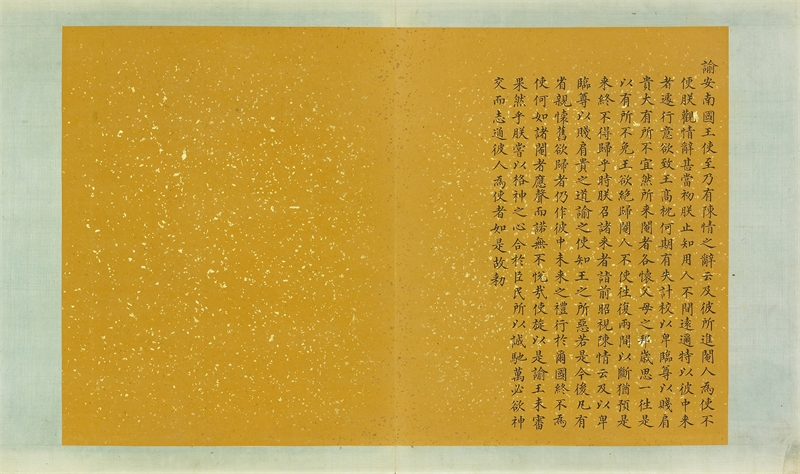 諭安南國王使至乃有陳情之辭云及彼所進閹人為使不
便朕觀情辭甚當初朕止知用人不間遠邇特以彼中來
者遽行意欲致王高枕何期有失計校以卑臨尊以賤肩
貴大有所不宜然所來閹者各懷父母之邦歲思一往是
以有所不免王欲絕歸閹人不使往復兩間以斷猶預是
來終不得歸乎時朕召諸來者詣前昭視陳情云及以卑
臨尊以賤肩貴之道諭之使知王之所惡若是今後凡有
省親懷舊欲歸者仍作彼中未來之禮行於爾國終不為
使何如諸閹者應聲而諾無不悅哉使旋以是諭王未審
果然乎朕嘗以格神之心合於臣民所以誠馳萬必欲神
交而志通彼人為使者如是故勅